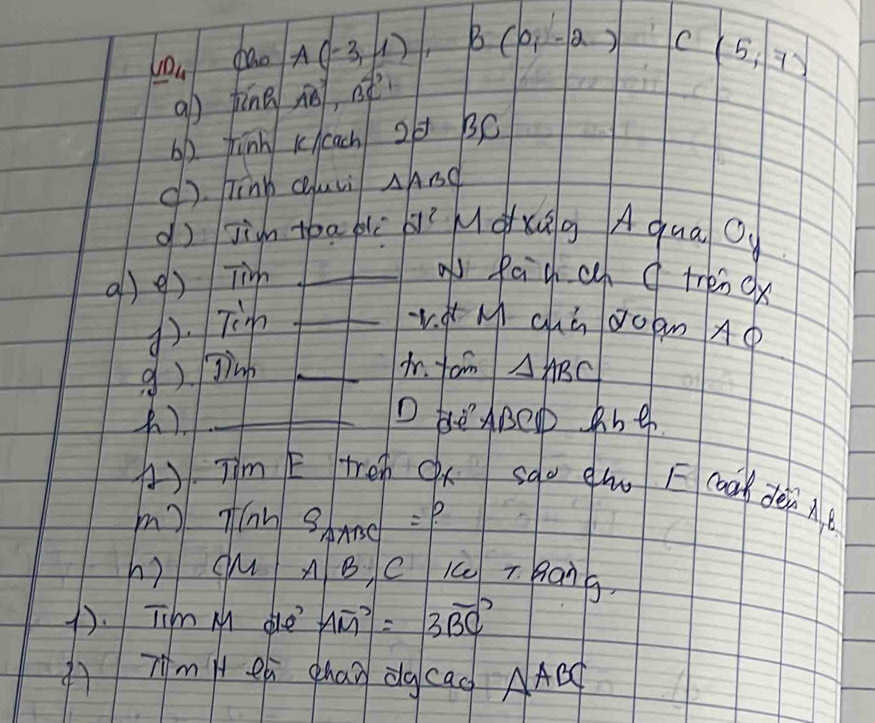 VD4 Cho A(-3, 1), B(0, -2) C(5, 7)
a) Tính AB⃗, BC⃗
b) Tính k/cách 2đ BC
c). Tính chu vi △ABC
d) Tìm tọa độ đ² M đ/xứng A qua Oy
a) e) Tìm ——— N là h. ch C trên Ox
f). Tìm ——— tr.đ M của đoạn AC
g). Tìm ——— tr. tâm △ABC
h). ——— D để ABCD hbh
Tìm E trên Ox sao cho E cách đều A, B
m) Tính S△ABC = ?
n) CM A, B, C ko T. Hàng.
Tìm M để AM⃗ = 3BC⃗
Tìm H là chân đg cao △ABC